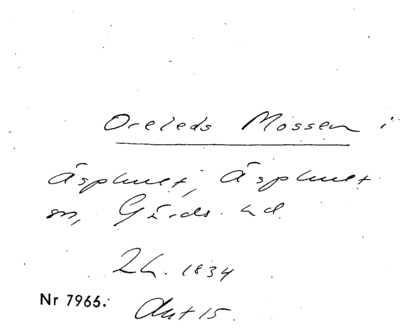 Oreleds Mossen i
Äsphult, Äsphult
sn, Gärds hd.
Lh. 1834
Nr 7965. Akt 15.